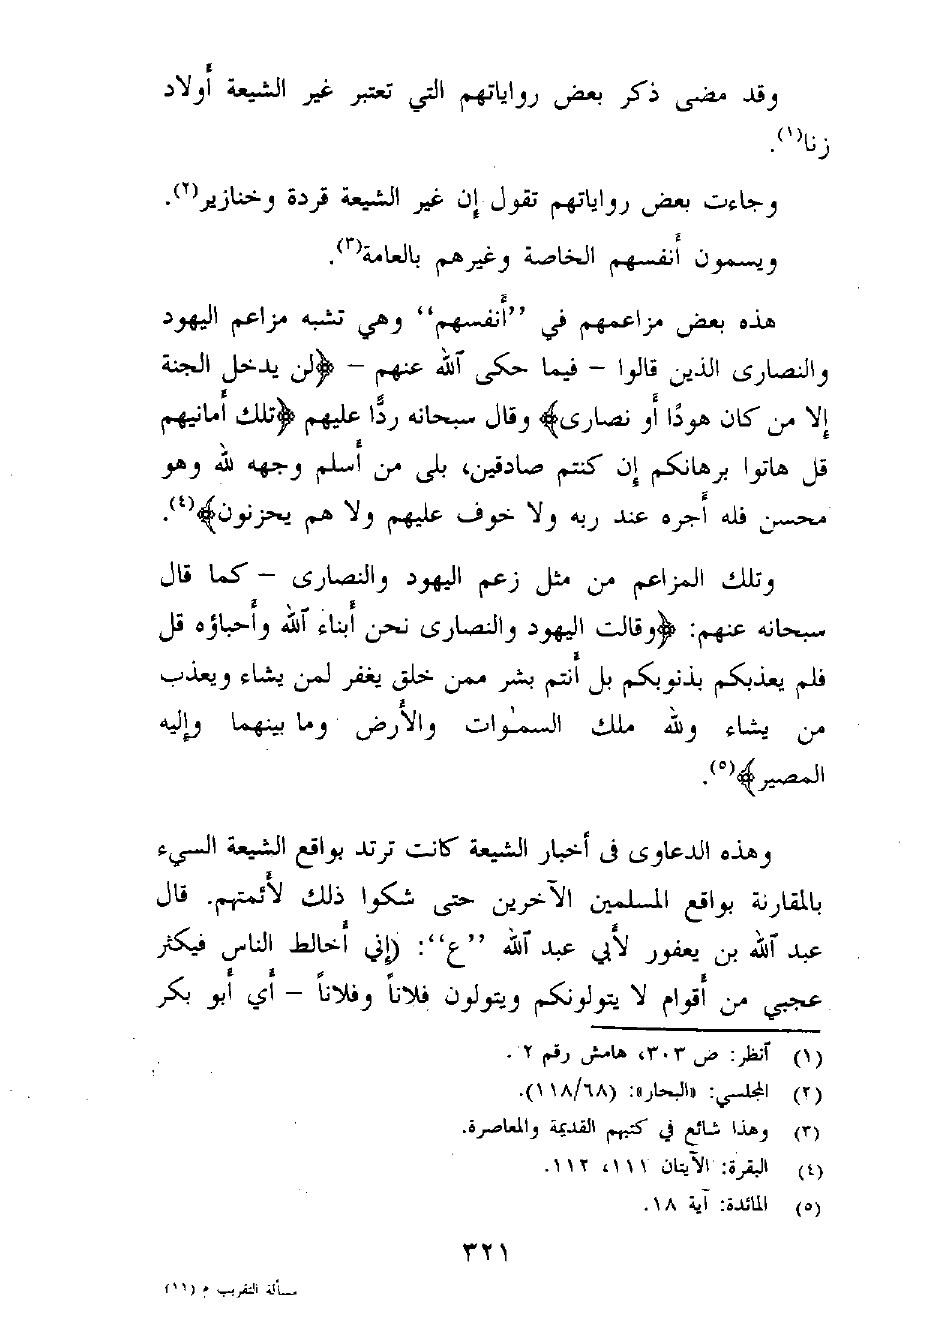 وقد مضى ذكر بعض رواياتهم التي تعتبر غير الشيعة أولاد
زنا(١).
وجاءت بعض رواياتهم تقول إن غير الشيعة قردة وخنازير(٢).
ويسمون أنفسهم الخاصة وغيرهم بالعامة(٣).
هذه بعض مزاعمهم في ”أنفسهم“ وهي تشبه مزاعم اليهود
والنصارى الذين قالوا – فيما حكى الله عنهم – ﴿لن يدخل الجنة
إلا من كان هودًا أو نصارى﴾ وقال سبحانه ردًّا عليهم ﴿تلك أمانيهم
قل هاتوا برهانكم إن كنتم صادقين، بلى من أسلم وجهه لله وهو
محسن فله أجره عند ربه ولا خوف عليهم ولا هم يحزنون﴾(٤).
وتلك المزاعم من مثل زعم اليهود والنصارى – كما قال
سبحانه عنهم: ﴿وقالت اليهود والنصارى نحن أبناء الله وأحباؤه قل
فلم يعذبكم بذنوبكم بل أنتم بشر ممن خلق يغفر لمن يشاء ويعذب
من يشاء ولله ملك السمٰوات والأرض وما بينهما وإليه
المصير﴾(٥).
وهذه الدعاوى فى أخبار الشيعة كانت ترتد بواقع الشيعة السيء
بالمقارنة بواقع المسلمين الآخرين حتى شكوا ذلك لأئمتهم. قال
عبد الله بن يعفور لأبي عبد الله ”ع“: (إني أخالط الناس فيكثر
عجبي من أقوام لا يتولونكم ويتولون فلاناً وفلاناً – أي أبو بكر
(١) أنظر: ص ٣٠٣، هامش رقم ٢ .
(٢) المجلسي: «البحار»: (١١٨/٦٨).
(٣) وهذا شائع في كتبهم القديمة والمعاصرة.
(٤) البقرة: الآيتان ١١١، ١١٢.
(٥) المائدة: آية ١٨.
٣٢١
مسألة التقريب م (١١)